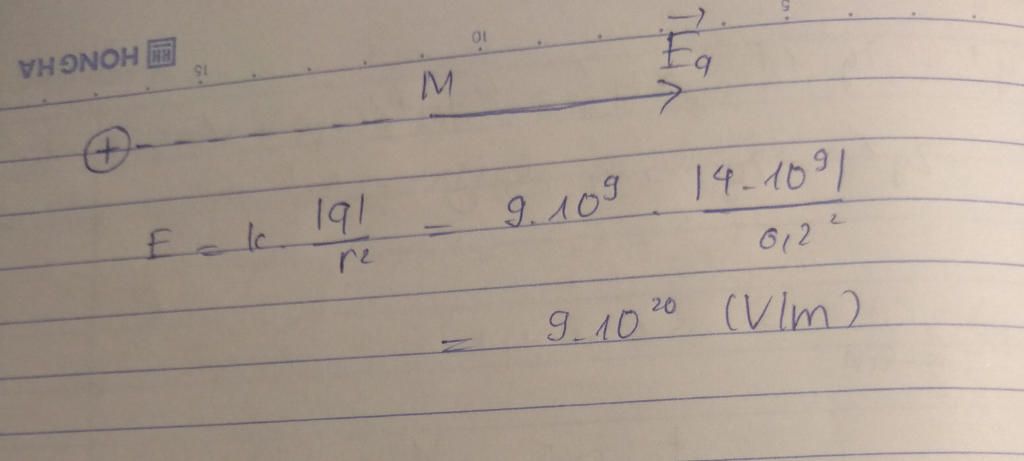 HONG HA
15 10 5
M
E⃗q
+
E = k. |q|/r² = 9.10⁹ . |4.10⁹|/0,2²
= 9.10²⁰ (V/m)